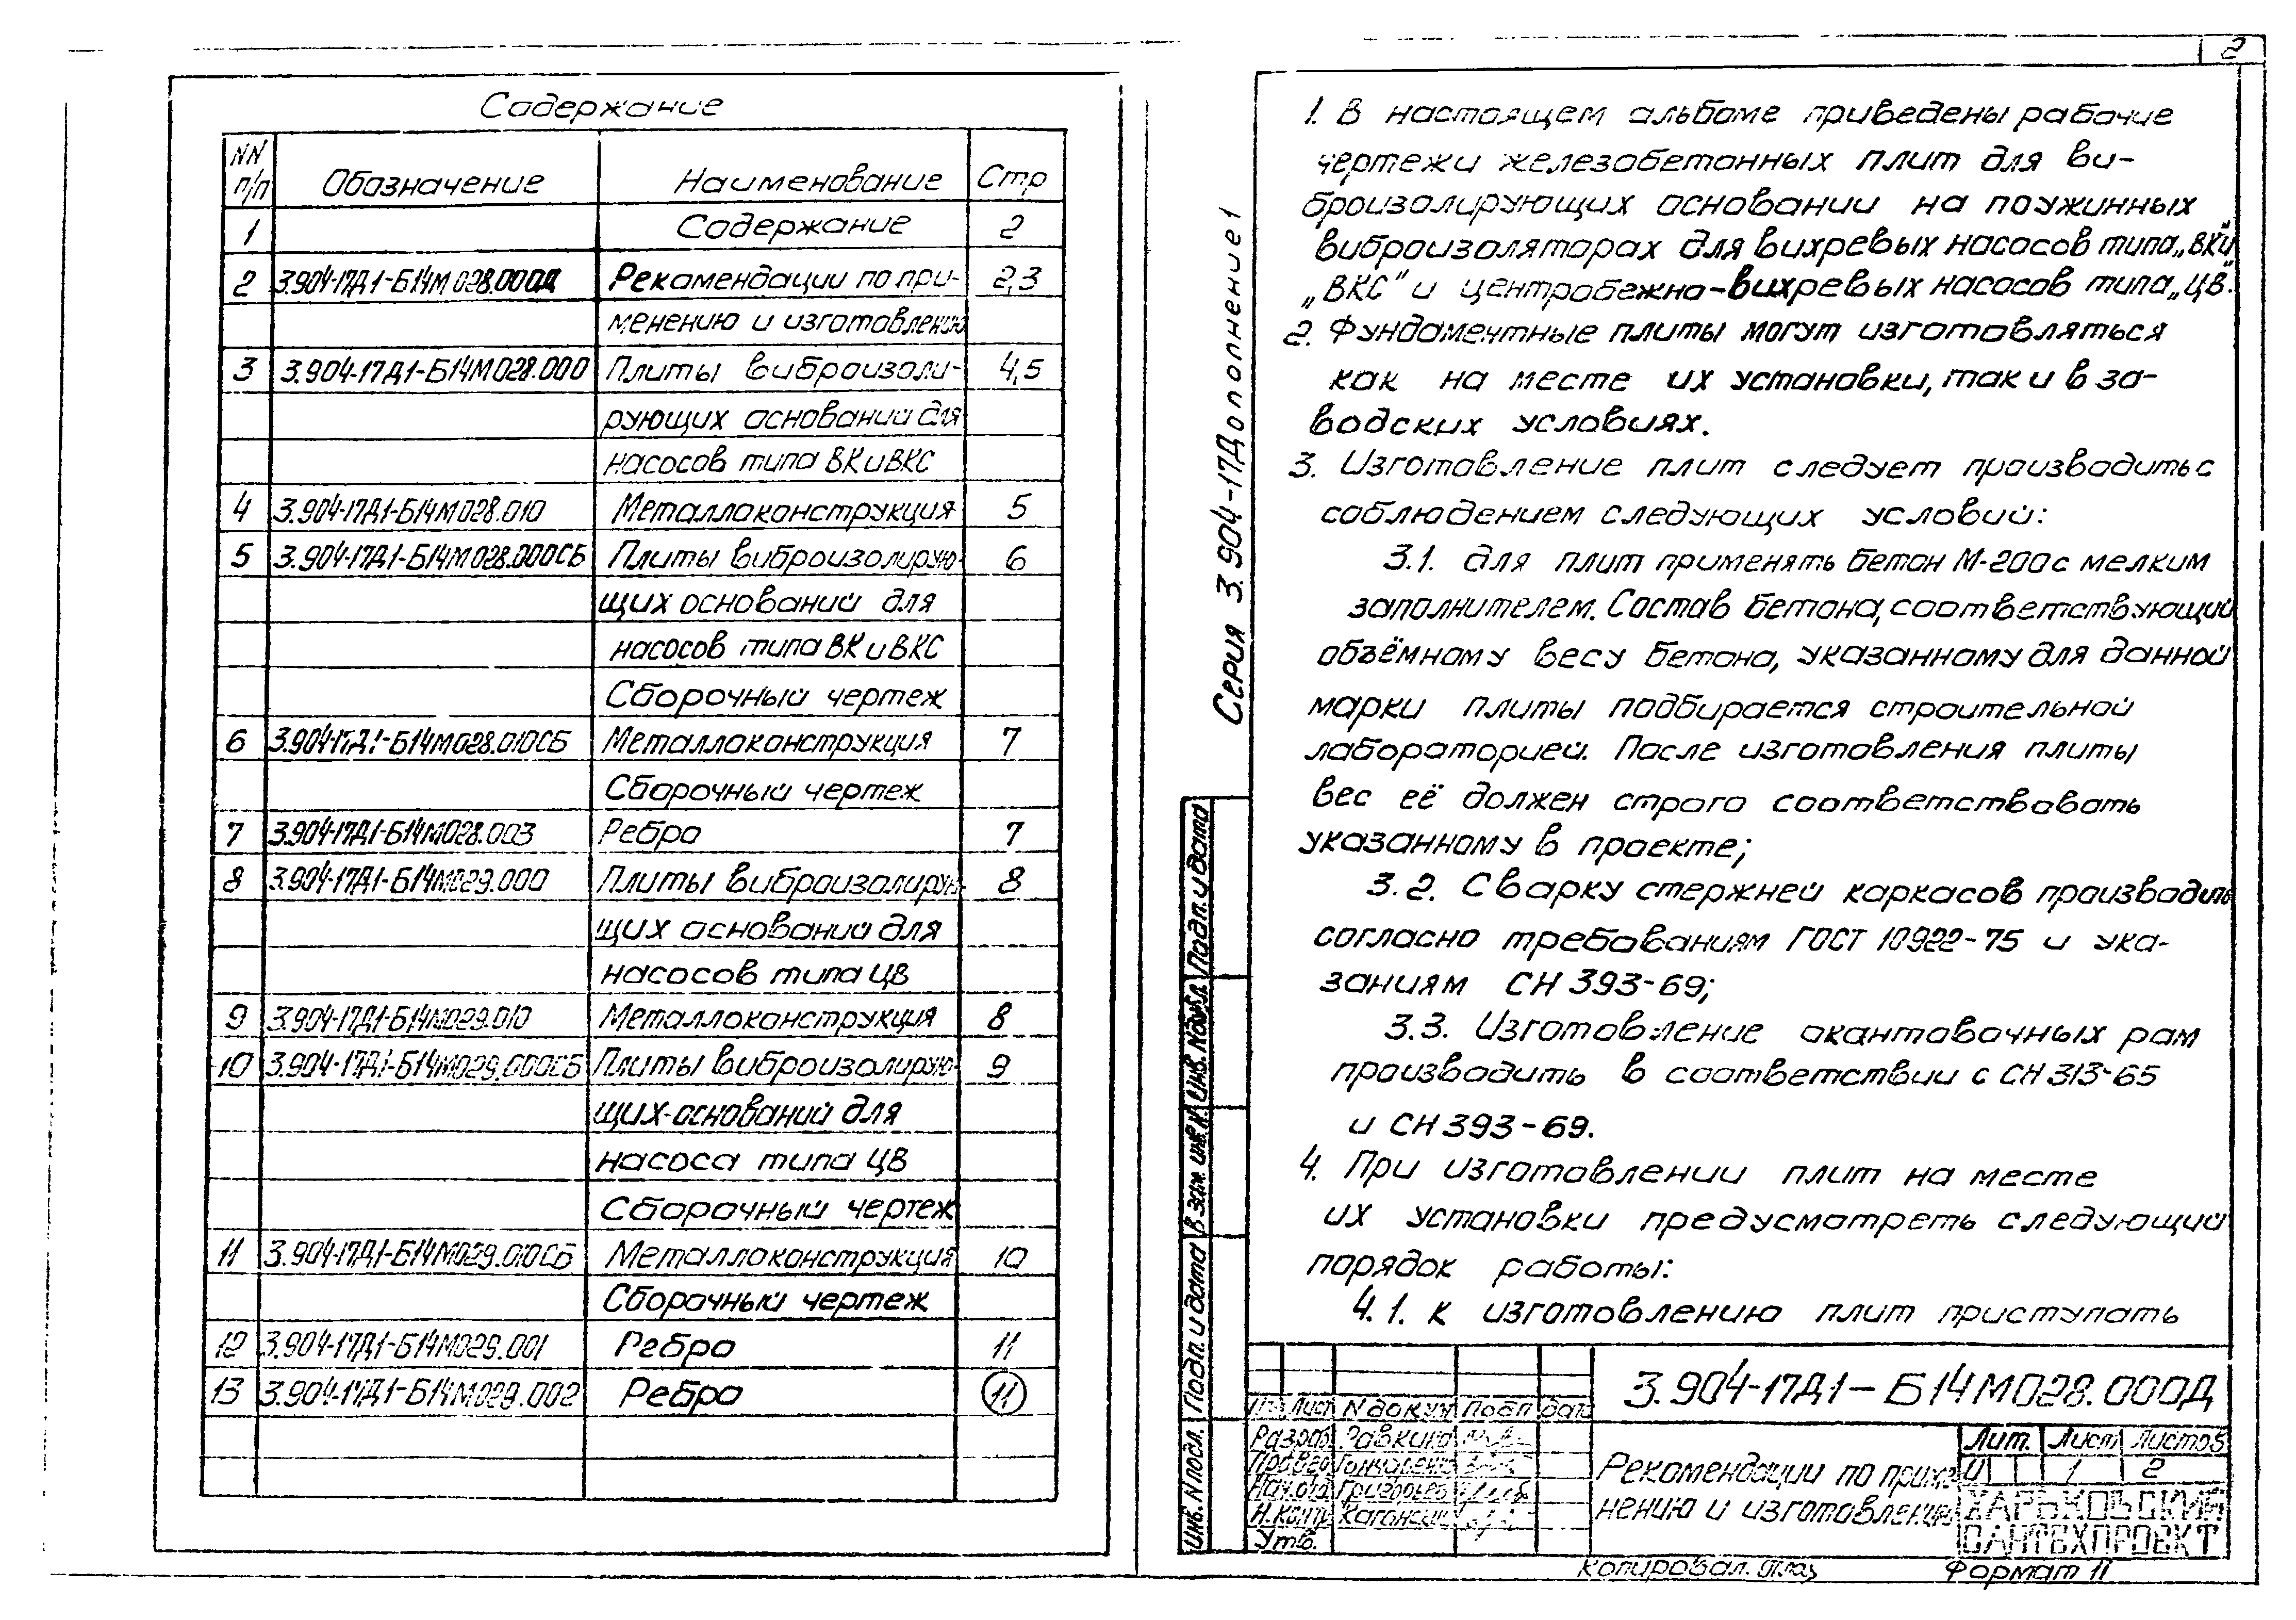 2
Содержание
NN п/п Обозначение Наименование Стр
1 Содержание 2
2 3.904-17Д1-Б14М028.000Д Рекомендации по при- 2,3
менению и изготовлению
3 3.904-17Д1-Б14М028.000 Плиты виброизоли- 4,5
рующих оснований для
насосов типа ВК и ВКС
4 3.904-17Д1-Б14М028.010 Металлоконструкция 5
5 3.904-17Д1-Б14М028.000СБ Плиты виброизолирую- 6
щих оснований для
насосов типа ВК и ВКС
Сборочный чертеж
6 3.904-17Д1-Б14М028.010СБ Металлоконструкция 7
Сборочный чертеж
7 3.904-17Д1-Б14М028.003 Ребро 7
8 3.904-17Д1-Б14М029.000 Плиты виброизолирую- 8
щих оснований для
насосов типа ЦВ
9 3.904-17Д1-Б14М029.010 Металлоконструкция 8
10 3.904-17Д1-Б14М029.000СБ Плиты виброизолирую- 9
щих оснований для
насоса типа ЦВ
Сборочный чертеж
11 3.904-17Д1-Б14М029.010СБ Металлоконструкция 10
Сборочный чертеж
12 3.904-17Д1-Б14М029.001 Ребро 11
13 3.904-17Д1-Б14М029.002 Ребро 11
Серия 3.904-17 Дополнение 1
1. В настоящем альбоме приведены рабочие
чертежи железобетонных плит для ви-
броизолирующих основании на поужинных
виброизоляторах для вихревых насосов типа „ВК" и
„ВКС" и центробежно-вихревых насосов типа „ЦВ".
2. Фундаментные плиты могут изготовляться
как на месте их установки, так и в за-
водских условиях.
3. Изготовление плит следует производить с
соблюдением следующих условий:
3.1. Для плит применять бетон М-200 с мелким
заполнителем. Состав бетона, соответствующий
объёмному весу бетона, указанному для данной
марки плиты подбирается строительной
лабораторией. После изготовления плиты
вес её должен строго соответствовать
указанному в проекте;
3.2. Сварку стержней каркасов производить
согласно требованиям ГОСТ 10922-75 и ука-
заниям СН 393-69;
3.3. Изготовление окантовочных рам
производить в соответствии с СН 313-65
и СН 393-69.
4. При изготовлении плит на месте
их установки предусмотреть следующий
порядок работы:
4.1. К изготовлению плит приступать
Инв. N подл. Подп. и дата Взам. инв. N Инв. N дубл. Подп. и дата
Лист N докум Подп дата
3.904-17Д1-Б14М028.000Д
Разраб. Равкина
Провер Гончаренко
Нач.отд Григорьев
Н.Контр
Утв.
Рекомендации по приме-
нению и изготовлению
Лит. Лист Листов
И 1 2
ХАРЬКОВСКИЙ
САНТЕХПРОЕКТ
Копировал. Формат 11